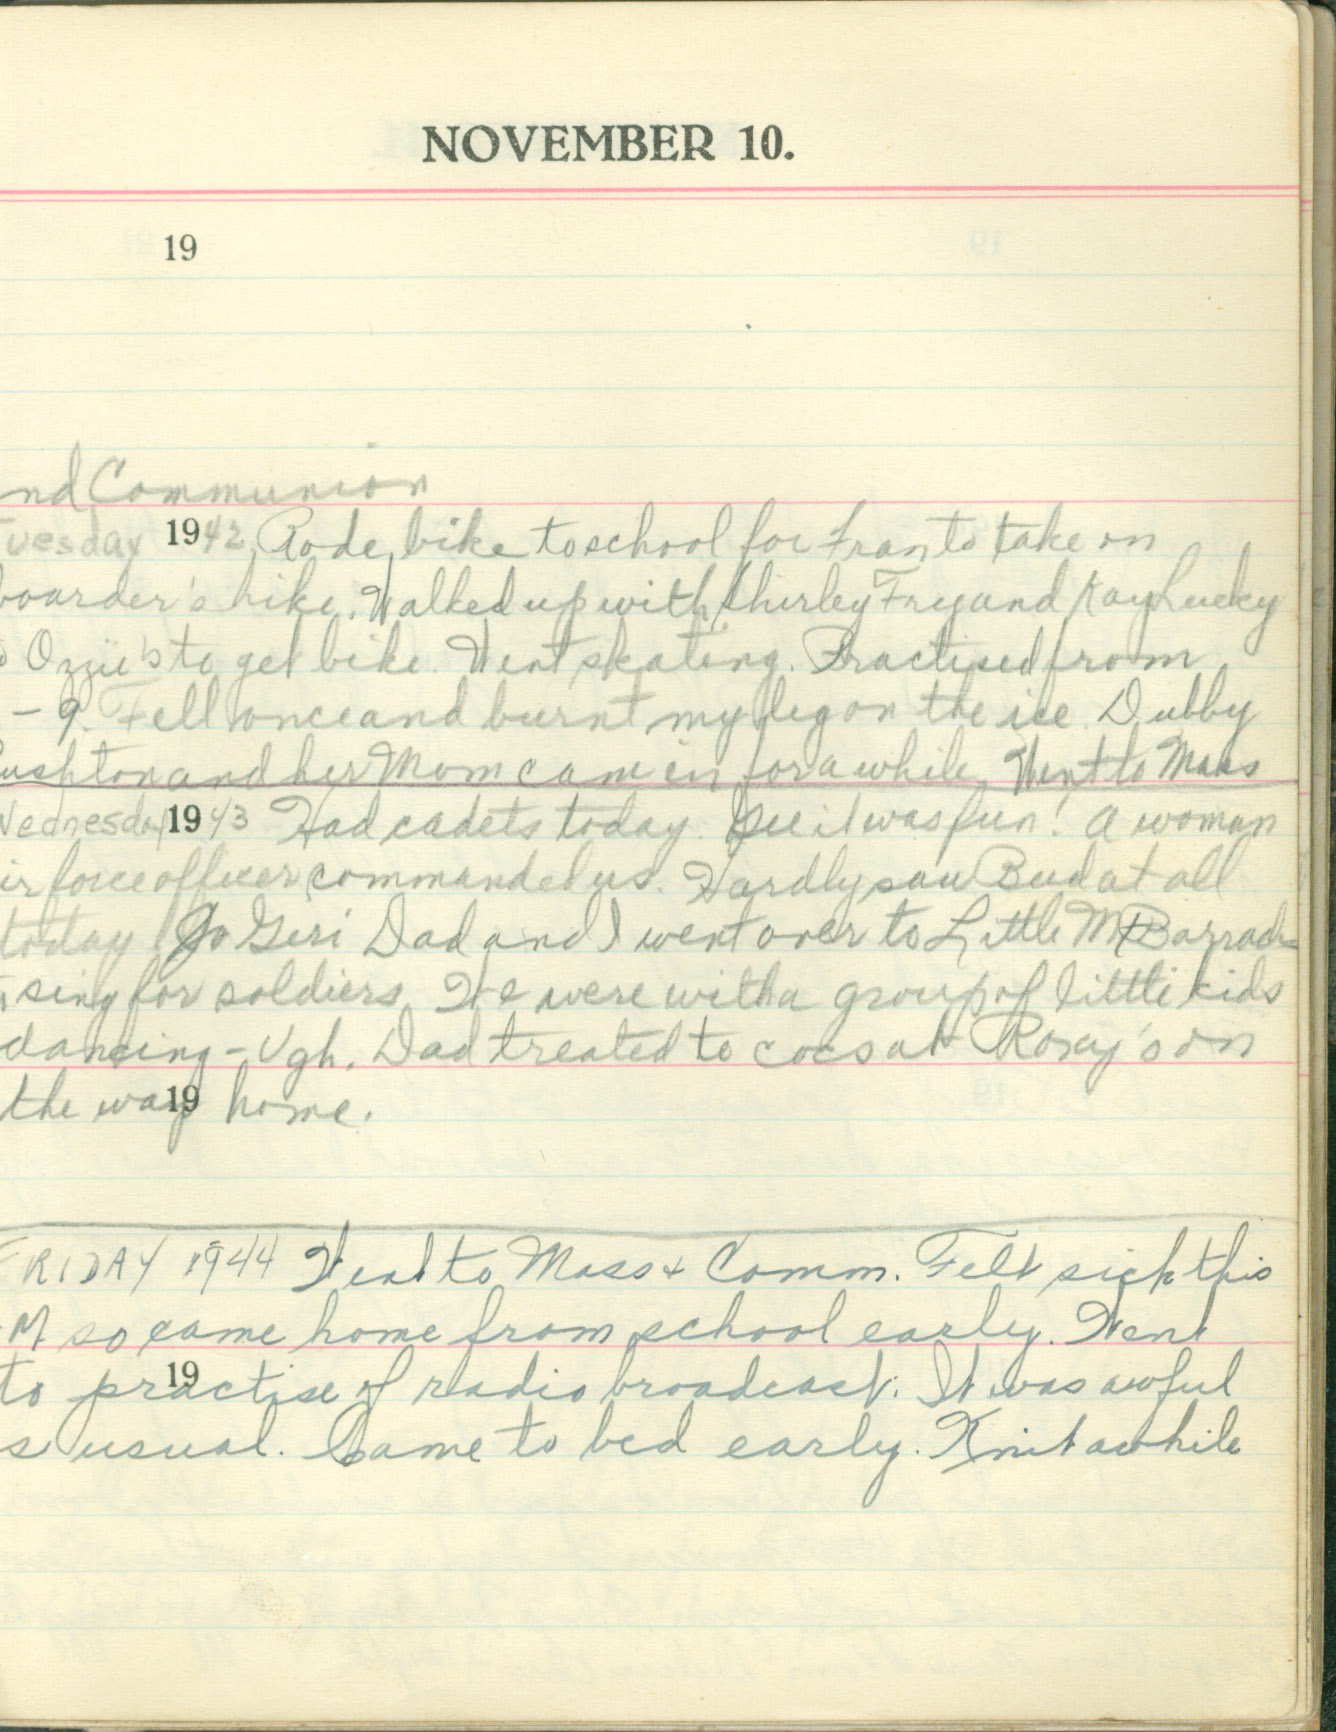 NOVEMBER 10.
19
nd Communion
Tuesday 1942 Rode bike to school for Fran to take on
boarder's hike. Walked up with Shirley Fry and Kay Lucky
Ozzie's to get bike. Went skating. Practised from
- 9. Fell once and burnt my leg on the ice. Dubby
and her Mom came in for a while. Went to Mass
Wednesday 1943 Had cadets today. Gee it was fun! A woman
ir force officer commanded us. Hardly saw Bud at all
today. Jo Geri Dad and I went over to Little Mt Barrack
sing for soldiers. We were with a group of little kids
dancing - Ugh. Dad treated to cocs at Roxy's on
the way 19 home.
FRIDAY 1944 Went to Mass + Comm. Felt sick this
M so came home from school early. Went
19
to practise of radio broadcast. It was awful
s usual. Came to bed early. Knit awhile